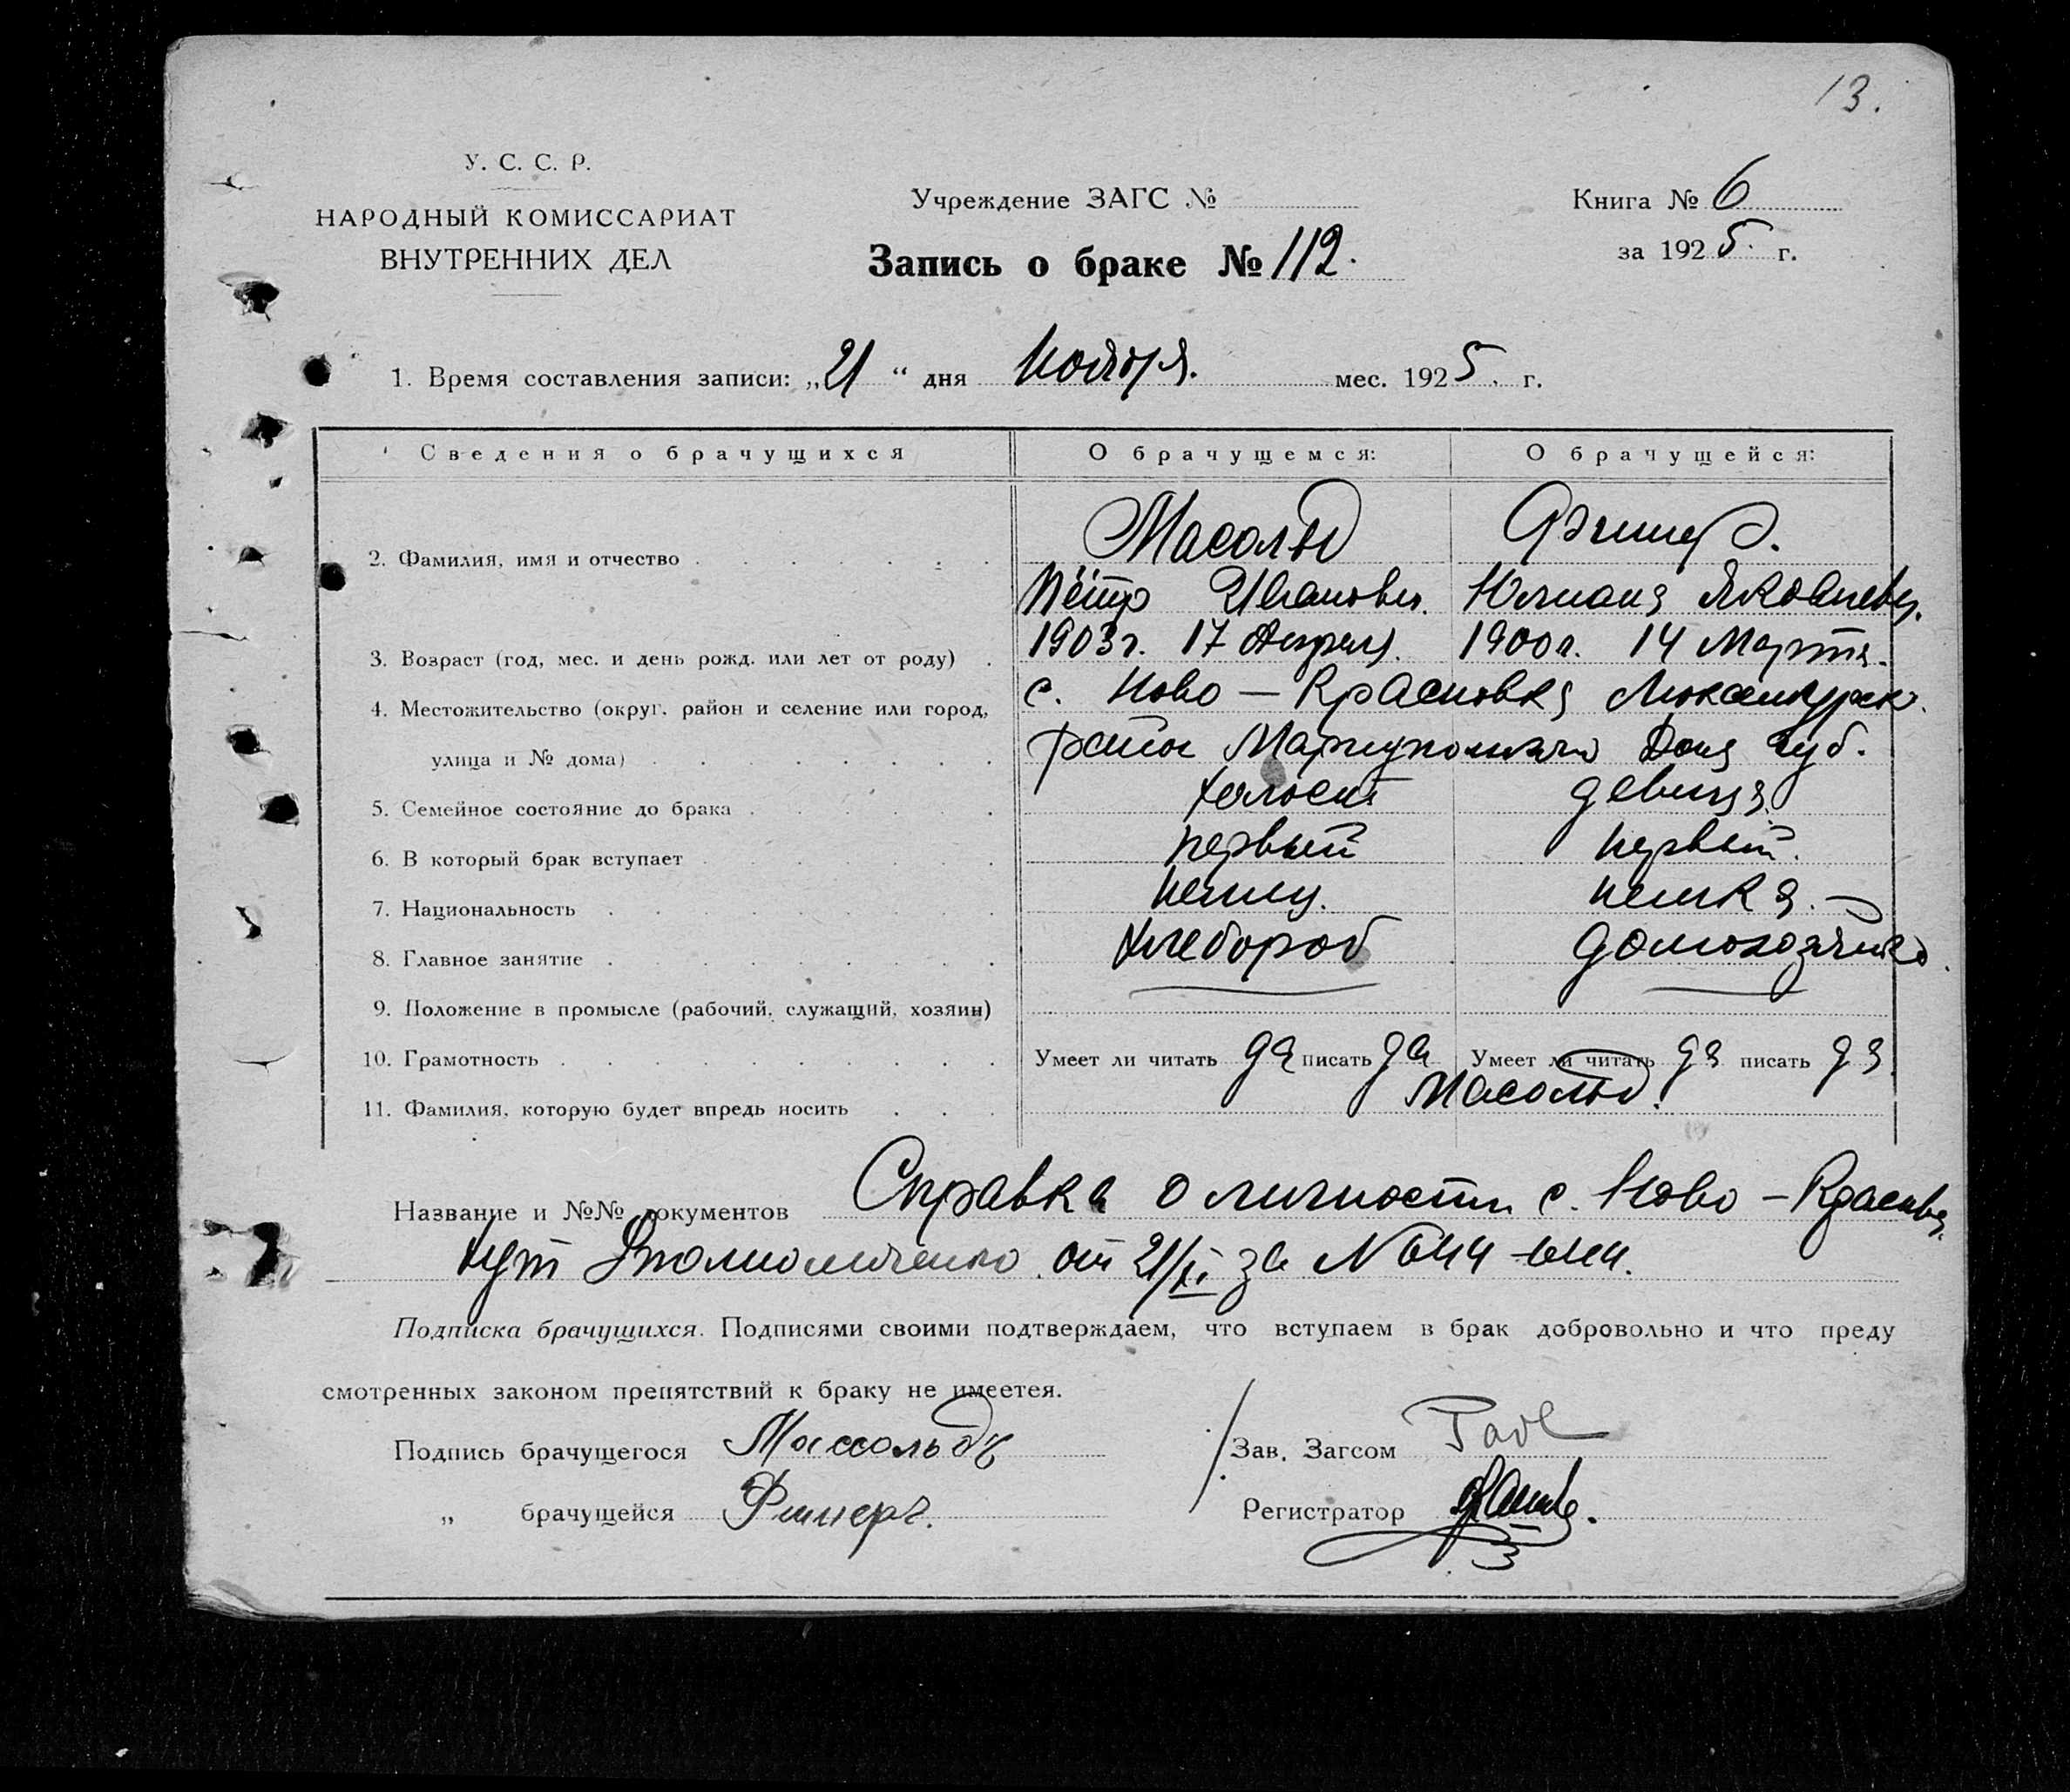 13.
У. С. С. Р.
НАРОДНЫЙ КОМИССАРИАТ
ВНУТРЕННИХ ДЕЛ
Учреждение ЗАГС №
Запись о браке № 112.
Книга № 6
за 1925 г.
1. Время составления записи: „21“ дня Ноября. мес. 1925 г.
Сведения о брачущихся О брачущемся: О брачущейся:
2. Фамилия, имя и отчество Масольд
Пётр Иванович. Юлиана Яковлевн.
3. Возраст (год, мес. и день рожд. или лет от роду) 1903г. 17 Апреля. 1900г. 14 Марта.
4. Местожительство (округ. район и селение или город, с. Ново — Красновка Люксембургск.
улица и № дома) район Мариупольского Дона губ.
5. Семейное состояние до брака холост девица.
6. В который брак вступает первый первый.
7. Национальность немец. немка. —
8. Главное занятие хлебороб домохозяйка.
9. Положение в промысле (рабочий, служащий, хозяин)
10. Грамотность Умеет ли читать да писать да Умеет ли читать да писать да
11. Фамилия, которую будет впредь носить Масольд.
Название и №№ документов Справка о личности с. Ново – Красновка
от 21/XI за N 644
Подписка брачущихся. Подписями своими подтверждаем, что вступаем в брак добровольно и что преду
смотренных законом препятствий к браку не имеетея.
Подпись брачущегося Массольдъ
Зав. Загсом
„ брачущейся
Регистратор